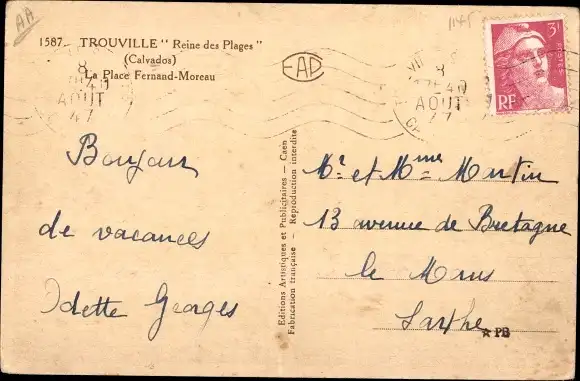 AA
1587. TROUVILLE "Reine des Plages"
(Calvados)
La Place Fernand-Moreau
EAP
1145
3F
RF
8
AOUT
47
8
AOUT
47
Bonjour
de vacances
Odette Georges
Editions Artistiques et Publicitaires — Caen
Fabrication française — Reproduction interdite
Mr et Mme Martin
13 avenue de Bretagne
le Mans
Sarthe
PB